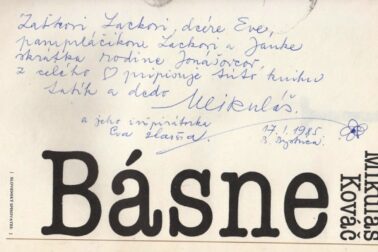 Zaťkovi Lackovi, dcére Eve,
pampláčikovi Lackovi a Janke
skrátka rodine Jonášovcov,
z celého ♡ pripisuje túto knihu
tatík a dedo
Mikuláš.
a jeho inšpirátorka
Eva zlatá
17. 1. 1985
B. Bystrica
Básne
Mikuláš
Kováč
SLOVENSKÝ SPISOVATEĽ